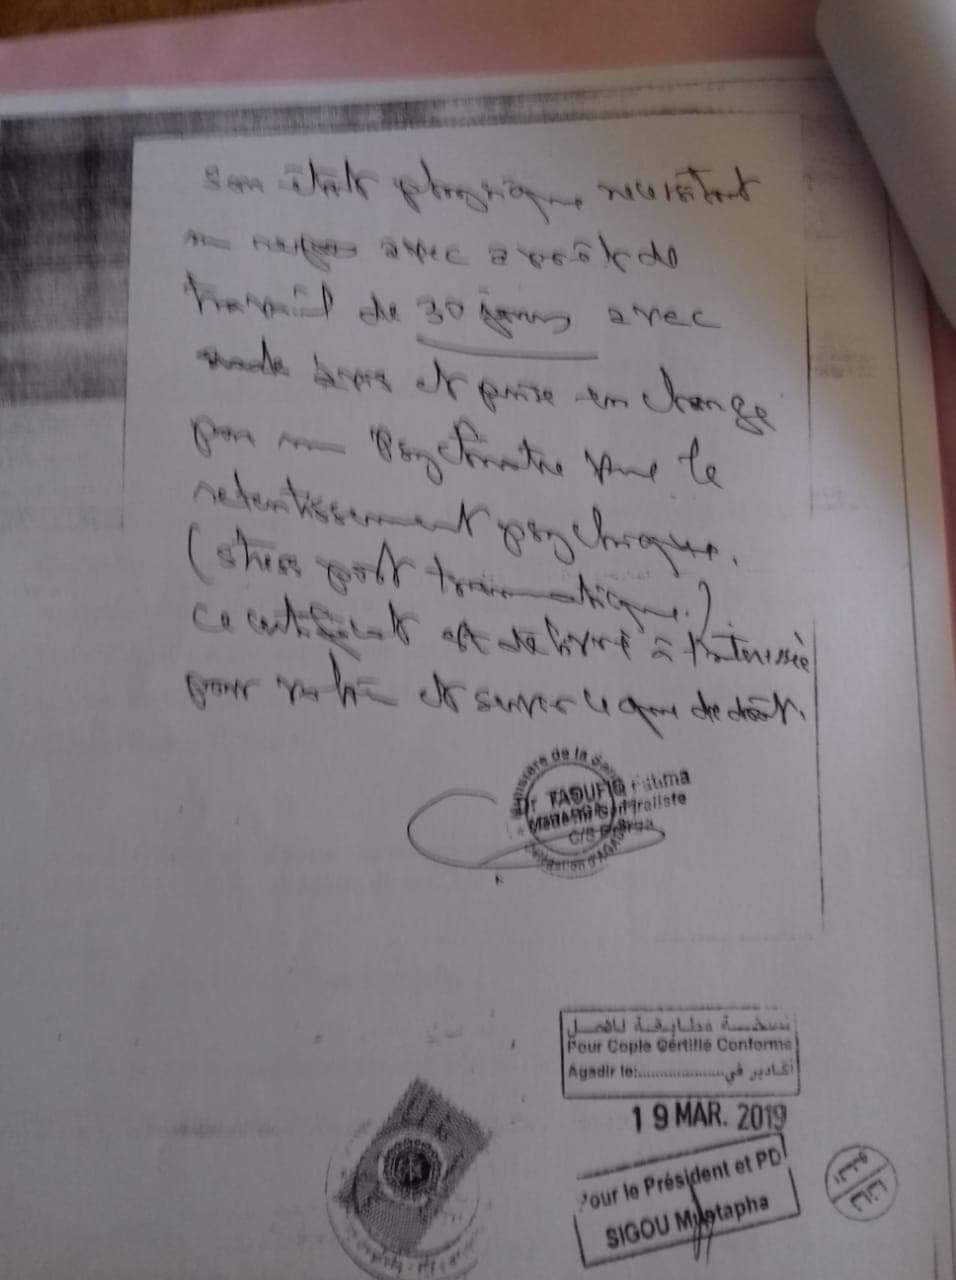 son état physique nécessitant
un repos avec arrêt de
travail de 30 jours avec
avis et prise en charge
par un Psychiatre vue le
retentissement psychique.
(stress post traumatique.)
ce certificat est délivré à l'interessée
pour valoir et servir ce que de droit.
Ministère de la Santé
Dr TAOUFIQ Fatima
Médecin Généraliste
C/S
Délégation d'AGADIR
نسخة مطابقة للأصل
Pour Copie Certifié Conforme
Agadir le:....................أكادير في
19 MAR. 2019
Pour le Président et PD
SIGOU Mustapha